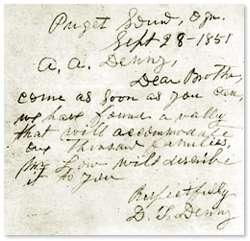 Puget Sound, Ogn.
Sept 28-1851
A. A. Denny,
Dear Brother
come as soon as you can,
we have found a vally
that will accommodate
one thousand families,
Mr. Low will describe
it to you
Respectfully
D. T. Denny